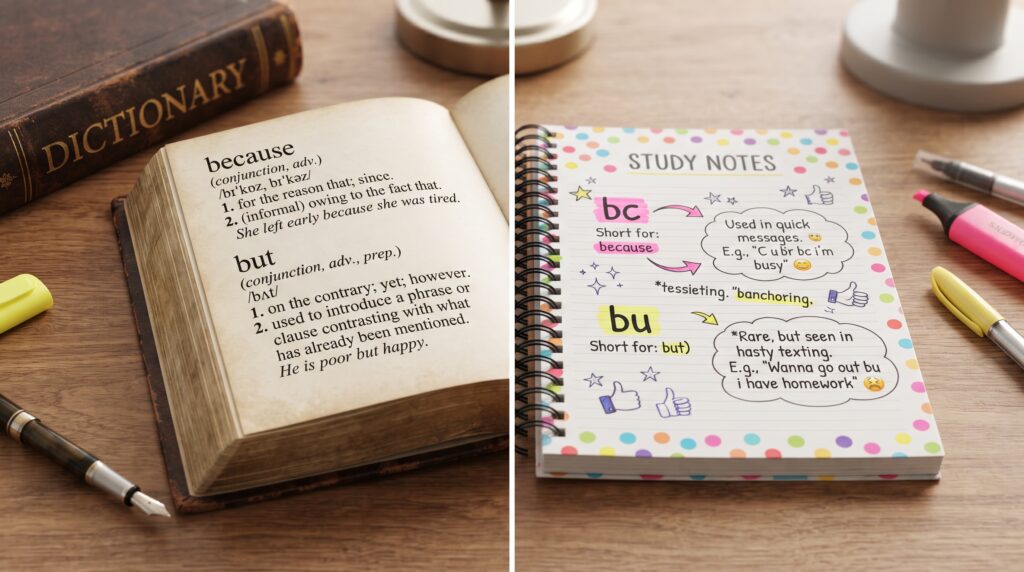 DICTIONARY
because
(conjunction, adv.)
/bɪˈkɒz, bɪˈkəz/
1. for the reason that; since.
2. (informal) owing to the fact that.
She left early because she was tired.
but
(conjunction, adv., prep.)
/bʌt/
1. on the contrary; yet; however.
2. used to introduce a phrase or
clause contrasting with what
has already been mentioned.
He is poor but happy.
STUDY NOTES
bc
Short for:
because
Used in quick
messages. 
E.g., "C u br bc i'm
busy" 😊
*tessieting. "banchoring.
bu
Short for: but)
*Rare, but seen in
hasty texting.
E.g., "Wanna go out bu
i have homework" 😫